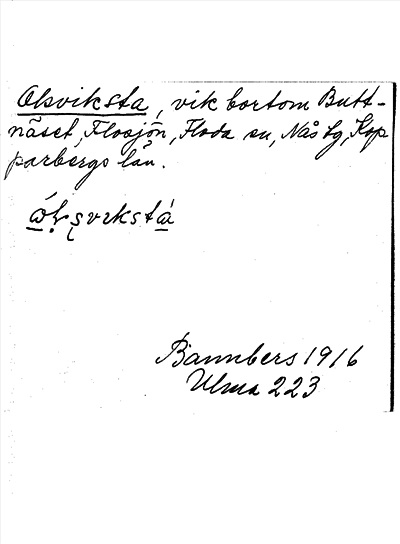 Olsviksta, vik bortom Butt-
näset, Flosjön, Floda sn, Nås hg, Kop
parbergs län.
Bannbers 1916
Ulma 223